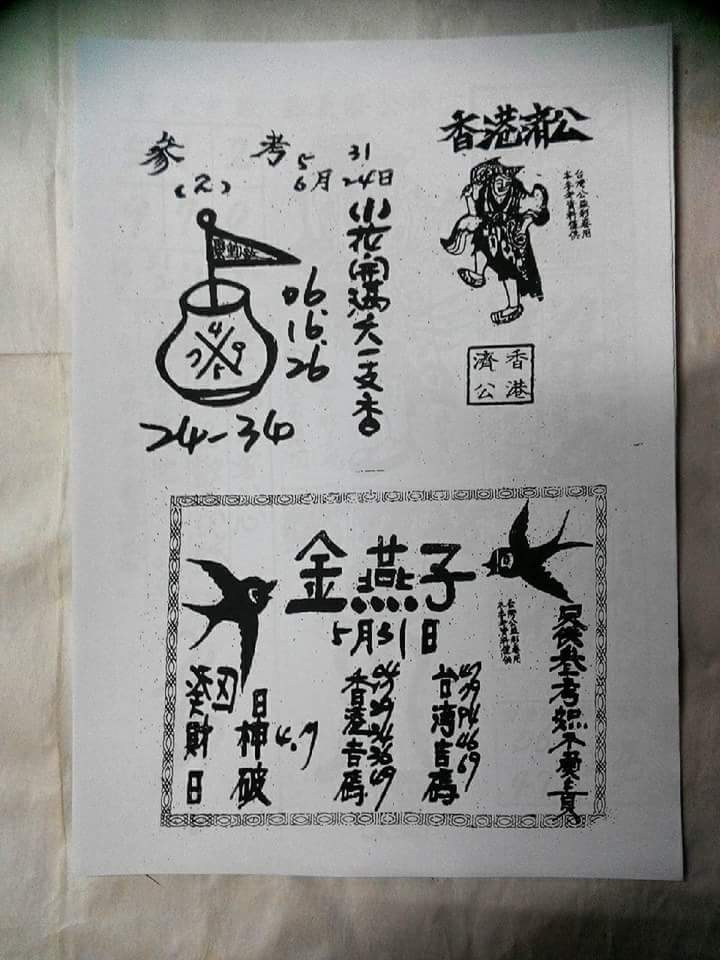 香港濟公
參考
(2)
5 31
6月24日
小花(開)滿六一支香
06.
16.
26
4
7 9
5
24-34
台灣公益彩券用
本參考資料僅供
香港
濟公
金燕子
5月31日
只供參考恕不負責
台灣公益彩券用
本參考資料僅供
台灣吉碼
46
69
香港吉碼
36
49
日神破
4.7
癸
財
日